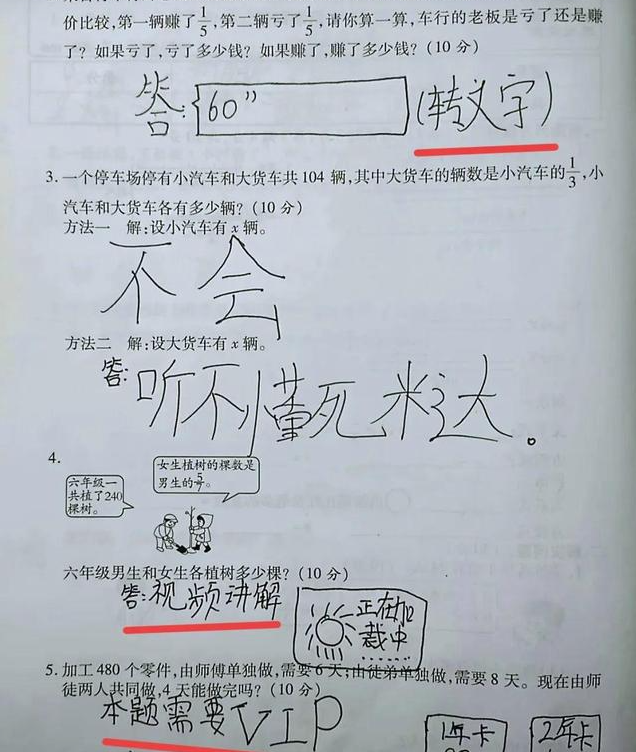 价比较,第一辆赚了1/5,第二辆亏了1/5,请你算一算,车行的老板是亏了还是赚
了?如果亏了,亏了多少钱?如果赚了,赚了多少钱?(10分)
答: 60" (转文字)
3.一个停车场停有小汽车和大货车共104辆,其中大货车的辆数是小汽车的1/3,小
汽车和大货车各有多少辆?(10分)
方法一 解:设小汽车有x辆。
不会
方法二 解:设大货车有x辆。
答:听不懂死
4.
女生植树的棵数是
男生的
六年级一
共植了240
棵树。
六年级男生和女生各植树多少棵?(10分)
答:视频讲解
正在加
载中
......
5.加工480个零件,由师傅单独做,需要6天;由徒弟单独做,需要8天。现在由师
徒两人共同做,4天能做完吗?(10分)
本题需要VIP
1年卡
2年卡